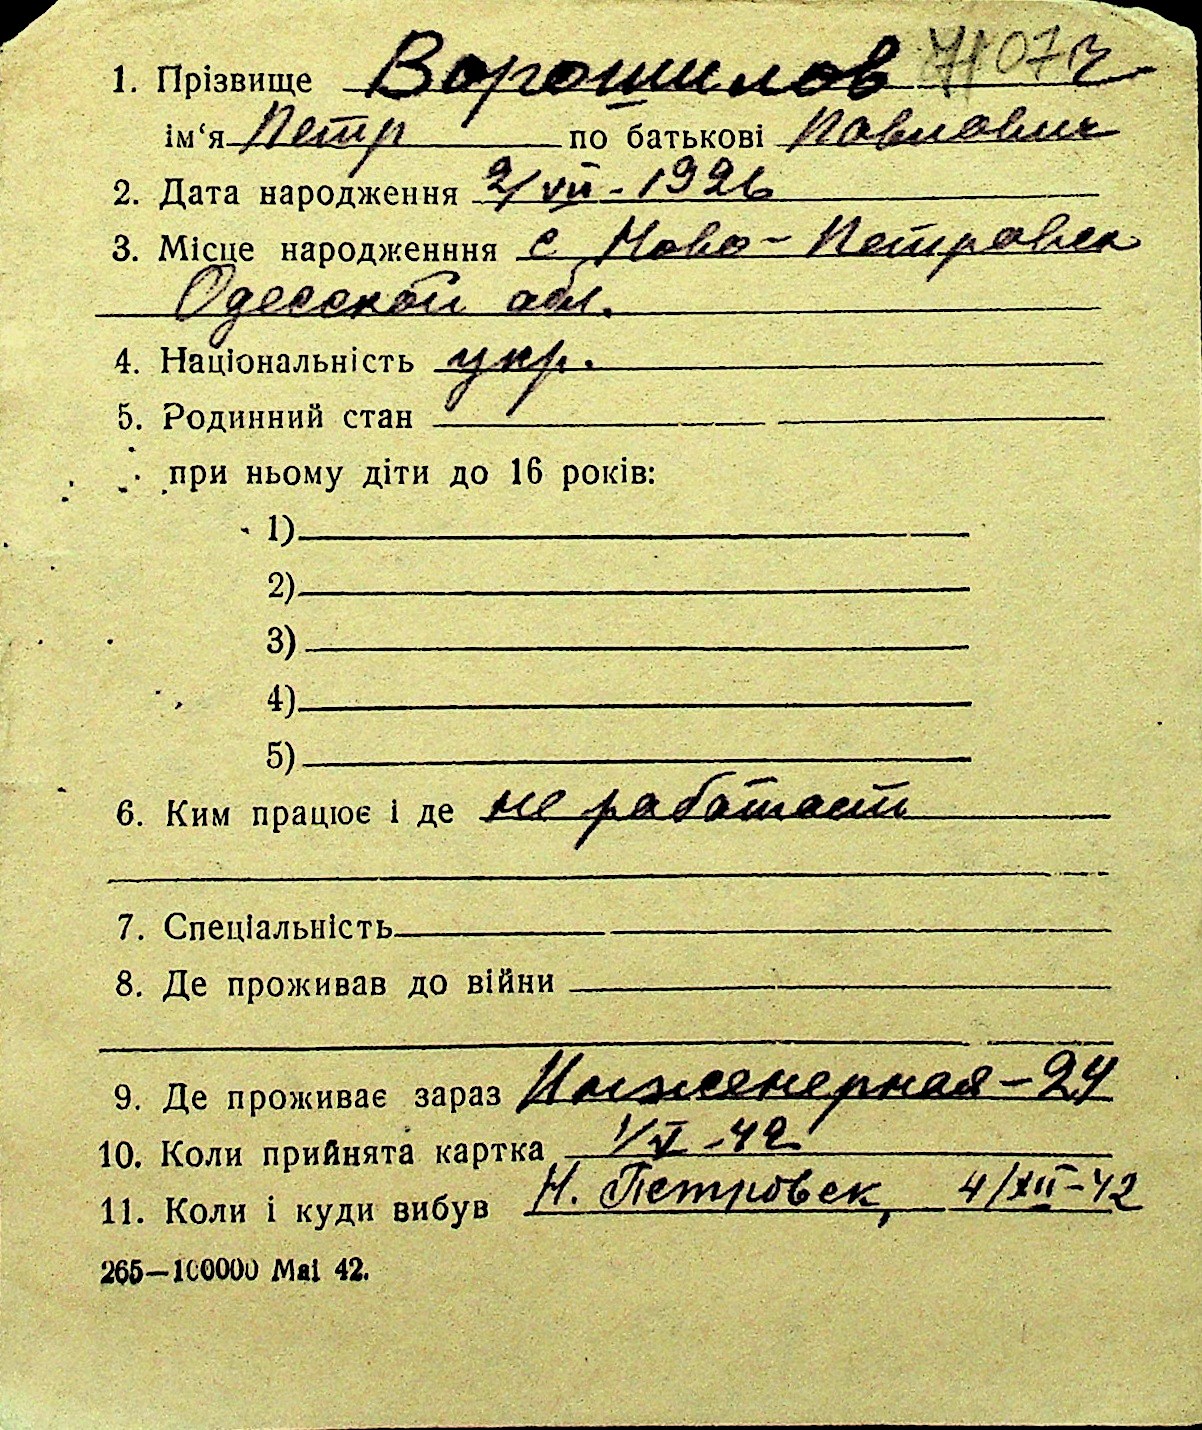 1. Прізвище Ворошилов
ім‘я Петр по батькові Павлович
2. Дата народження 2/VII - 1926
3. Місце народженння с Ново-Петровск
Одесской обл.
4. Національність укр.
5. Родинний стан
при ньому діти до 16 років:
1)
2)
3)
4)
5)
6. Ким працює і де не работает
7. Спеціальність
8. Де проживав до війни
9. Де проживає зараз Инженерная - 24
10. Коли прийнята картка 1/V - 42
11. Коли і куди вибув Н. Петровск, 4/XII - 42
265—100000 Mai 42.